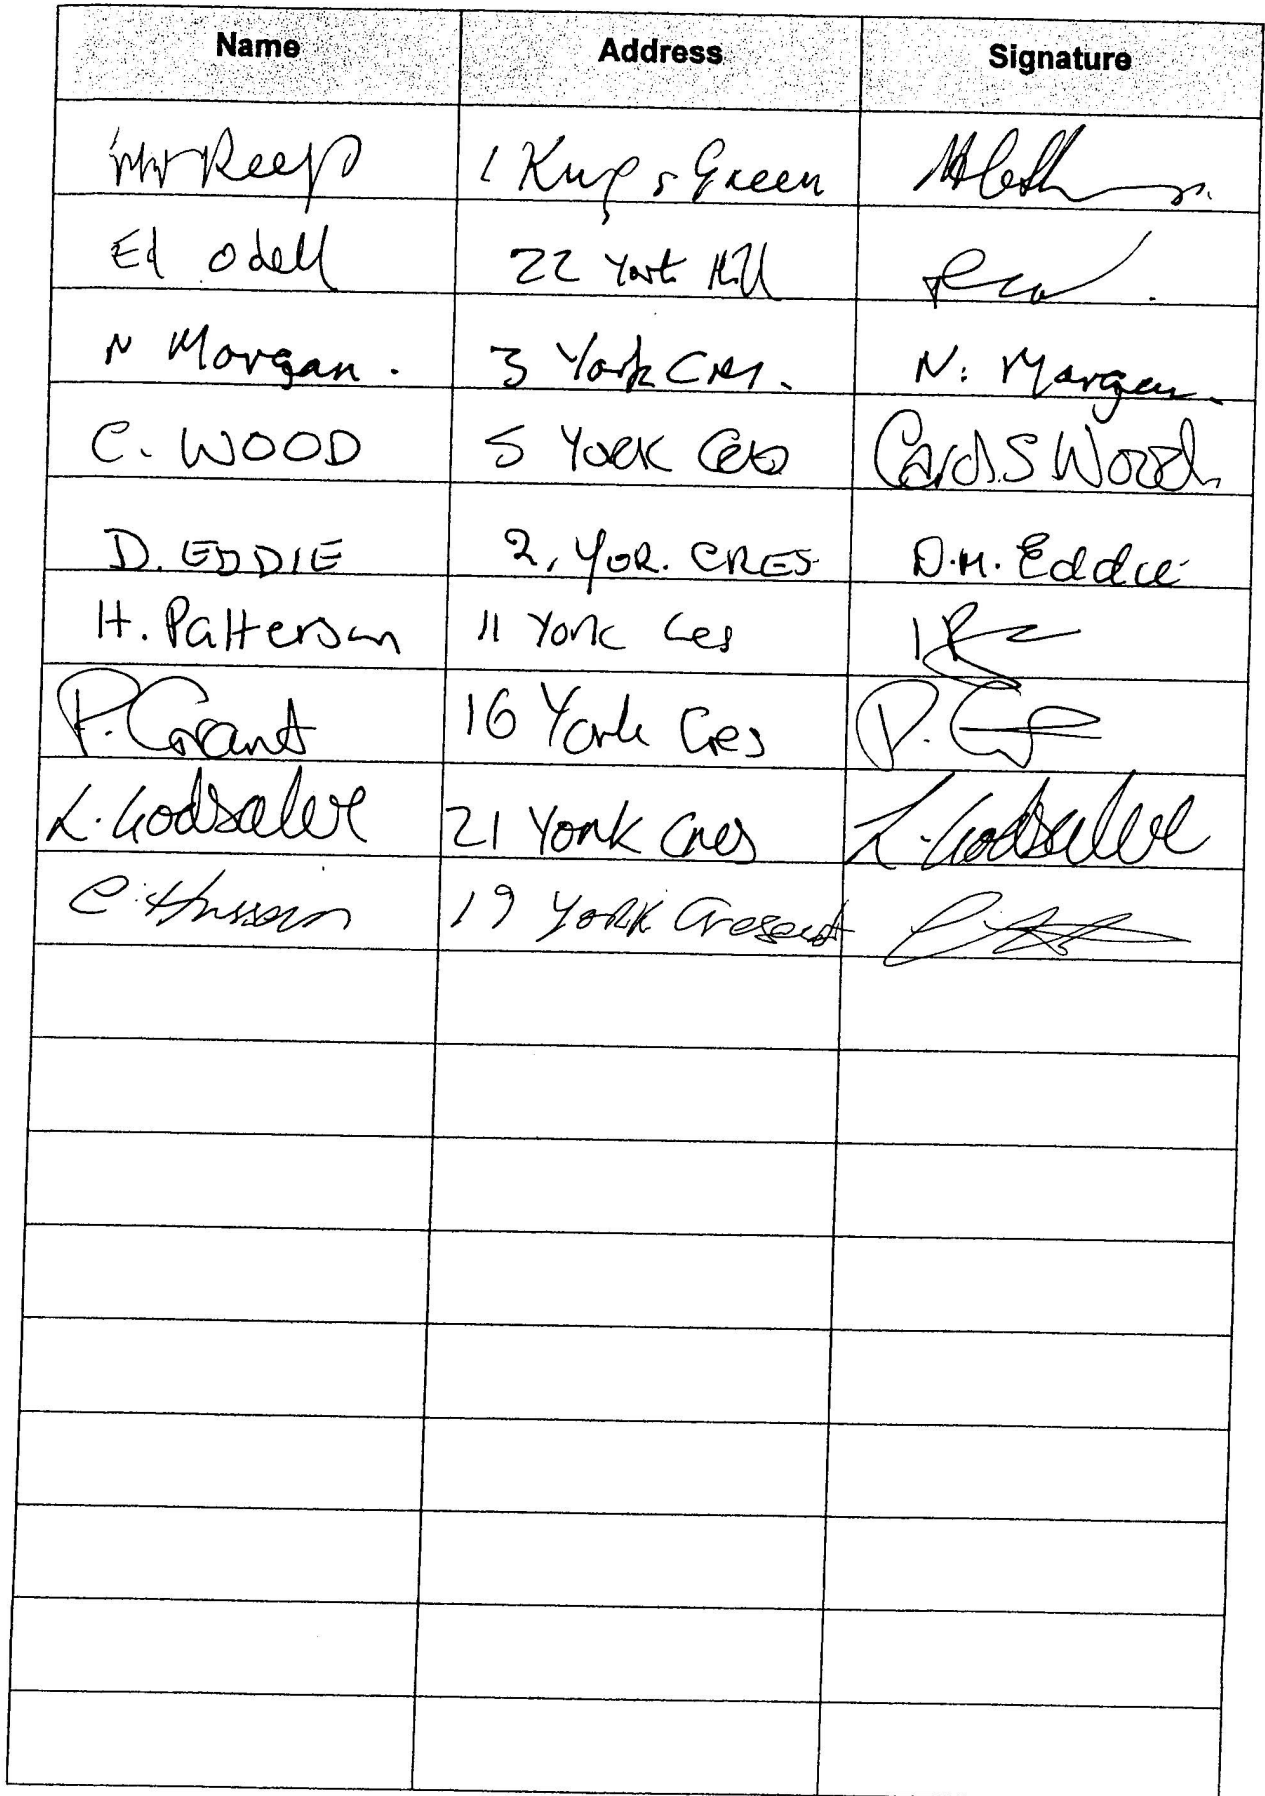 Name Address Signature
Mr Reep 1 Kings Green
Ed Odell 22 York Hill
N Morgan. 3 York Cres. N. Morgan.
C. WOOD 5 YORK Cres Carol S Wood
D. EDDIE 2, YOR. CRES D.M. Eddie
H. Patterson 11 York Cres
P. Grant 16 York Cres P. G
L. Godsalve 21 York Cres L. Godsalve
C. Hussein 19 York Cresent